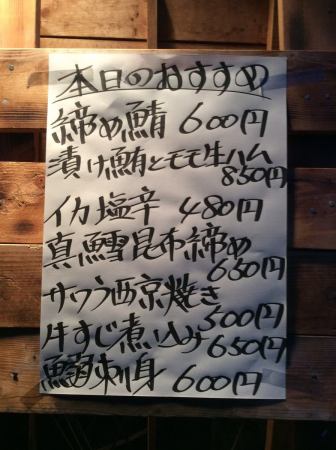 本日のおすすめ
締め鯖 600円
漬け鮪とモモ生ハム
850円
イカ塩辛 480円
真鱈昆布締め
660円
サワラ西京焼き
500円
牛すじ煮込み 650円
刺身 600円